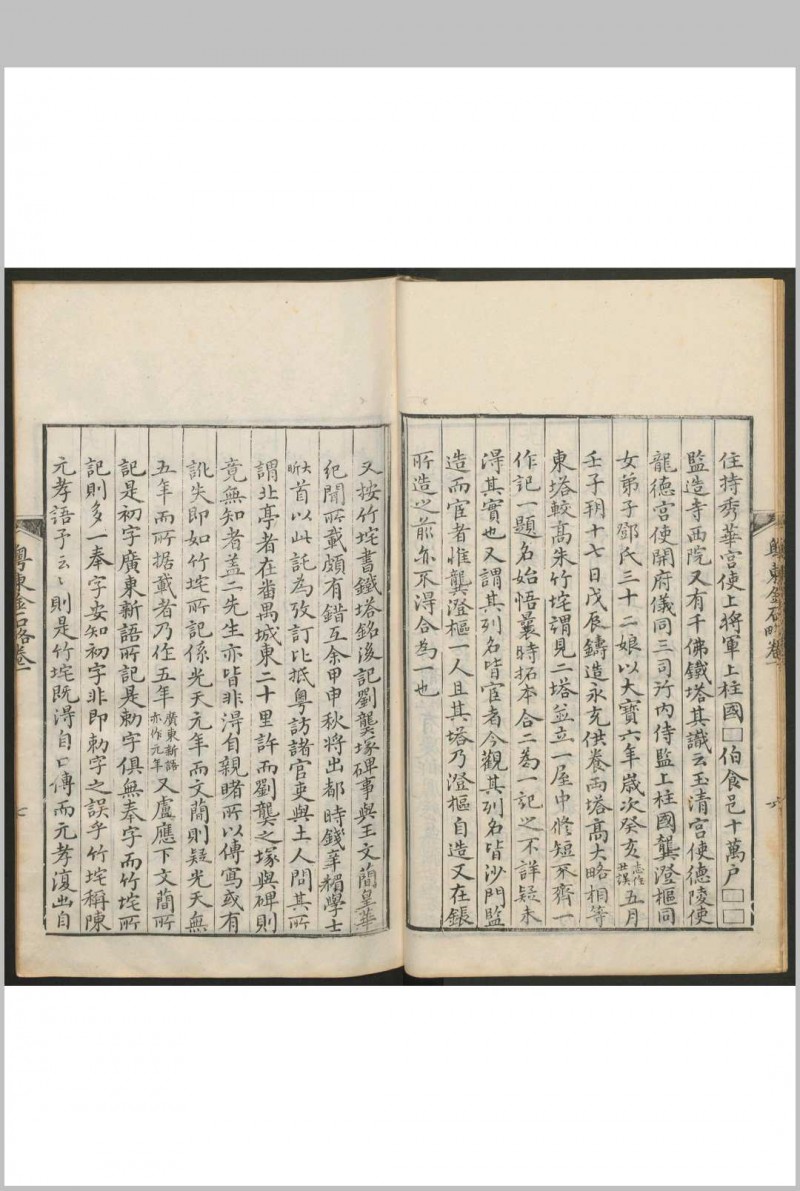 住持秀華宮使上將軍上柱國□伯食邑十萬户□□
監造寺西院又有千佛鐵塔其識云玉清宮使德陵使
龍德宮使開府儀同三司行内侍監上柱國龔澄樞同
女弟子鄧氏三十二娘以大寶六年歲次癸亥志作癸誤五月
壬子朔十七日戊辰鑄造永充供養兩塔高大略相等
東塔較高朱竹垞謂見二塔並立一屋中修短不齊一
作記一題名始悟曩時拓本合二為一記之不詳疑未
得其實也又謂其列名皆宦者今觀其列名皆沙門監
造而宦者惟龔澄樞一人且其塔乃澄樞自造又在鋹
所造之前亦不得合為一也
粵東金石略卷一
六
又按竹垞書鐵塔銘後記劉龑塚碑事與王文簡皇華
紀聞所載頗有錯互余甲申秋將出都時錢辛楣學士
大昕首以此託為攷訂比抵粵訪諸官吏與土人問其所
謂北亭者在番禺城東二十里許而劉龑之塚與碑則
竟無知者盖二先生亦皆非得自親睹所以傳寫或有
訛失即如竹垞所記係光天元年而文簡則疑光天無
五年而所据載者乃作五年廣東新語亦作元年又盧應下文簡所
記是初字廣東新語所記是勅字俱無奉字而竹垞所
記則多一奉字安知初字非即勅字之誤乎竹垞稱陳
元孝語予云云則是竹垞既得自口傳而元孝復出自
粵東金石略卷一
七